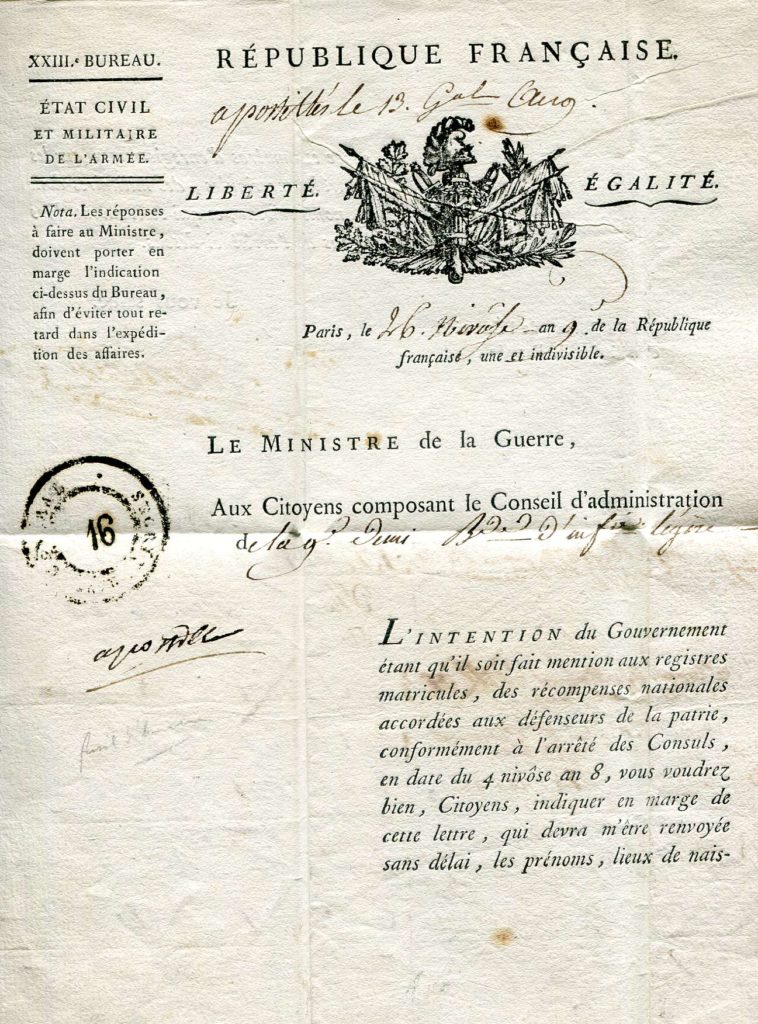 XXIII.e BUREAU.
ÉTAT CIVIL
ET MILITAIRE
DE L'ARMÉE.
Nota. Les réponses
à faire au Ministre,
doivent porter en
marge l'indication
ci-dessus du Bureau,
afin d'éviter tout re-
tard dans l'expédi-
tion des affaires.
RÉPUBLIQUE FRANÇAISE.
apostillés le 13. Gal
LIBERTÉ.
ÉGALITÉ.
Paris, le 26. Nivôse an 9 de la République
française, une et indivisible.
LE MINISTRE de la Guerre,
Aux Citoyens composant le Conseil d'administration
de la 9e demi Bde d'infie légère
16
apostille
L'INTENTION du Gouvernement
étant qu'il soit fait mention aux registres
matricules, des récompenses nationales
accordées aux défenseurs de la patrie,
conformément à l'arrêté des Consuls,
en date du 4 nivôse an 8, vous voudrez
bien, Citoyens, indiquer en marge de
cette lettre, qui devra m'être renvoyée
sans délai, les prénoms, lieux de nais-